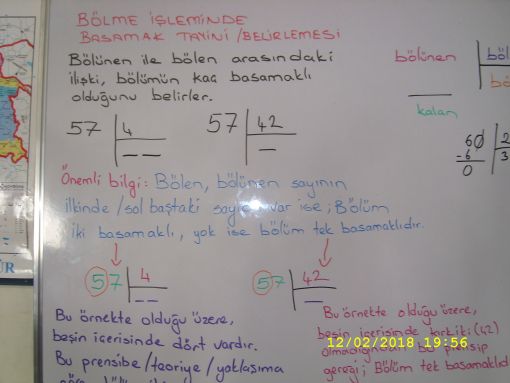 BÖLME İŞLEMİNDE
BASAMAK TAYİNİ/BELİRLEMESİ
Bölünen ile bölen arasındaki
ilişki, bölümün kaç basamaklı
olduğunu belirler.
bölünen
kalan
57 4
57 42
60 2
-6 3
0
Önemli bilgi: Bölen, bölünen sayının
ilkinde/sol baştaki var ise; Bölüm
iki basamaklı, yok ise bölüm tek basamaklıdır.
57 4
57 42
Bu örnekte olduğu üzere,
beşin içerisinde dört vardır.
Bu prensibe/teoriye/yoklaşıma
Bu örnekte olduğu üzere,
beşin içerisinde kırkiki (42)
gereği; Bölüm tek basamaklıd
12/02/2018 19:56
ÜR